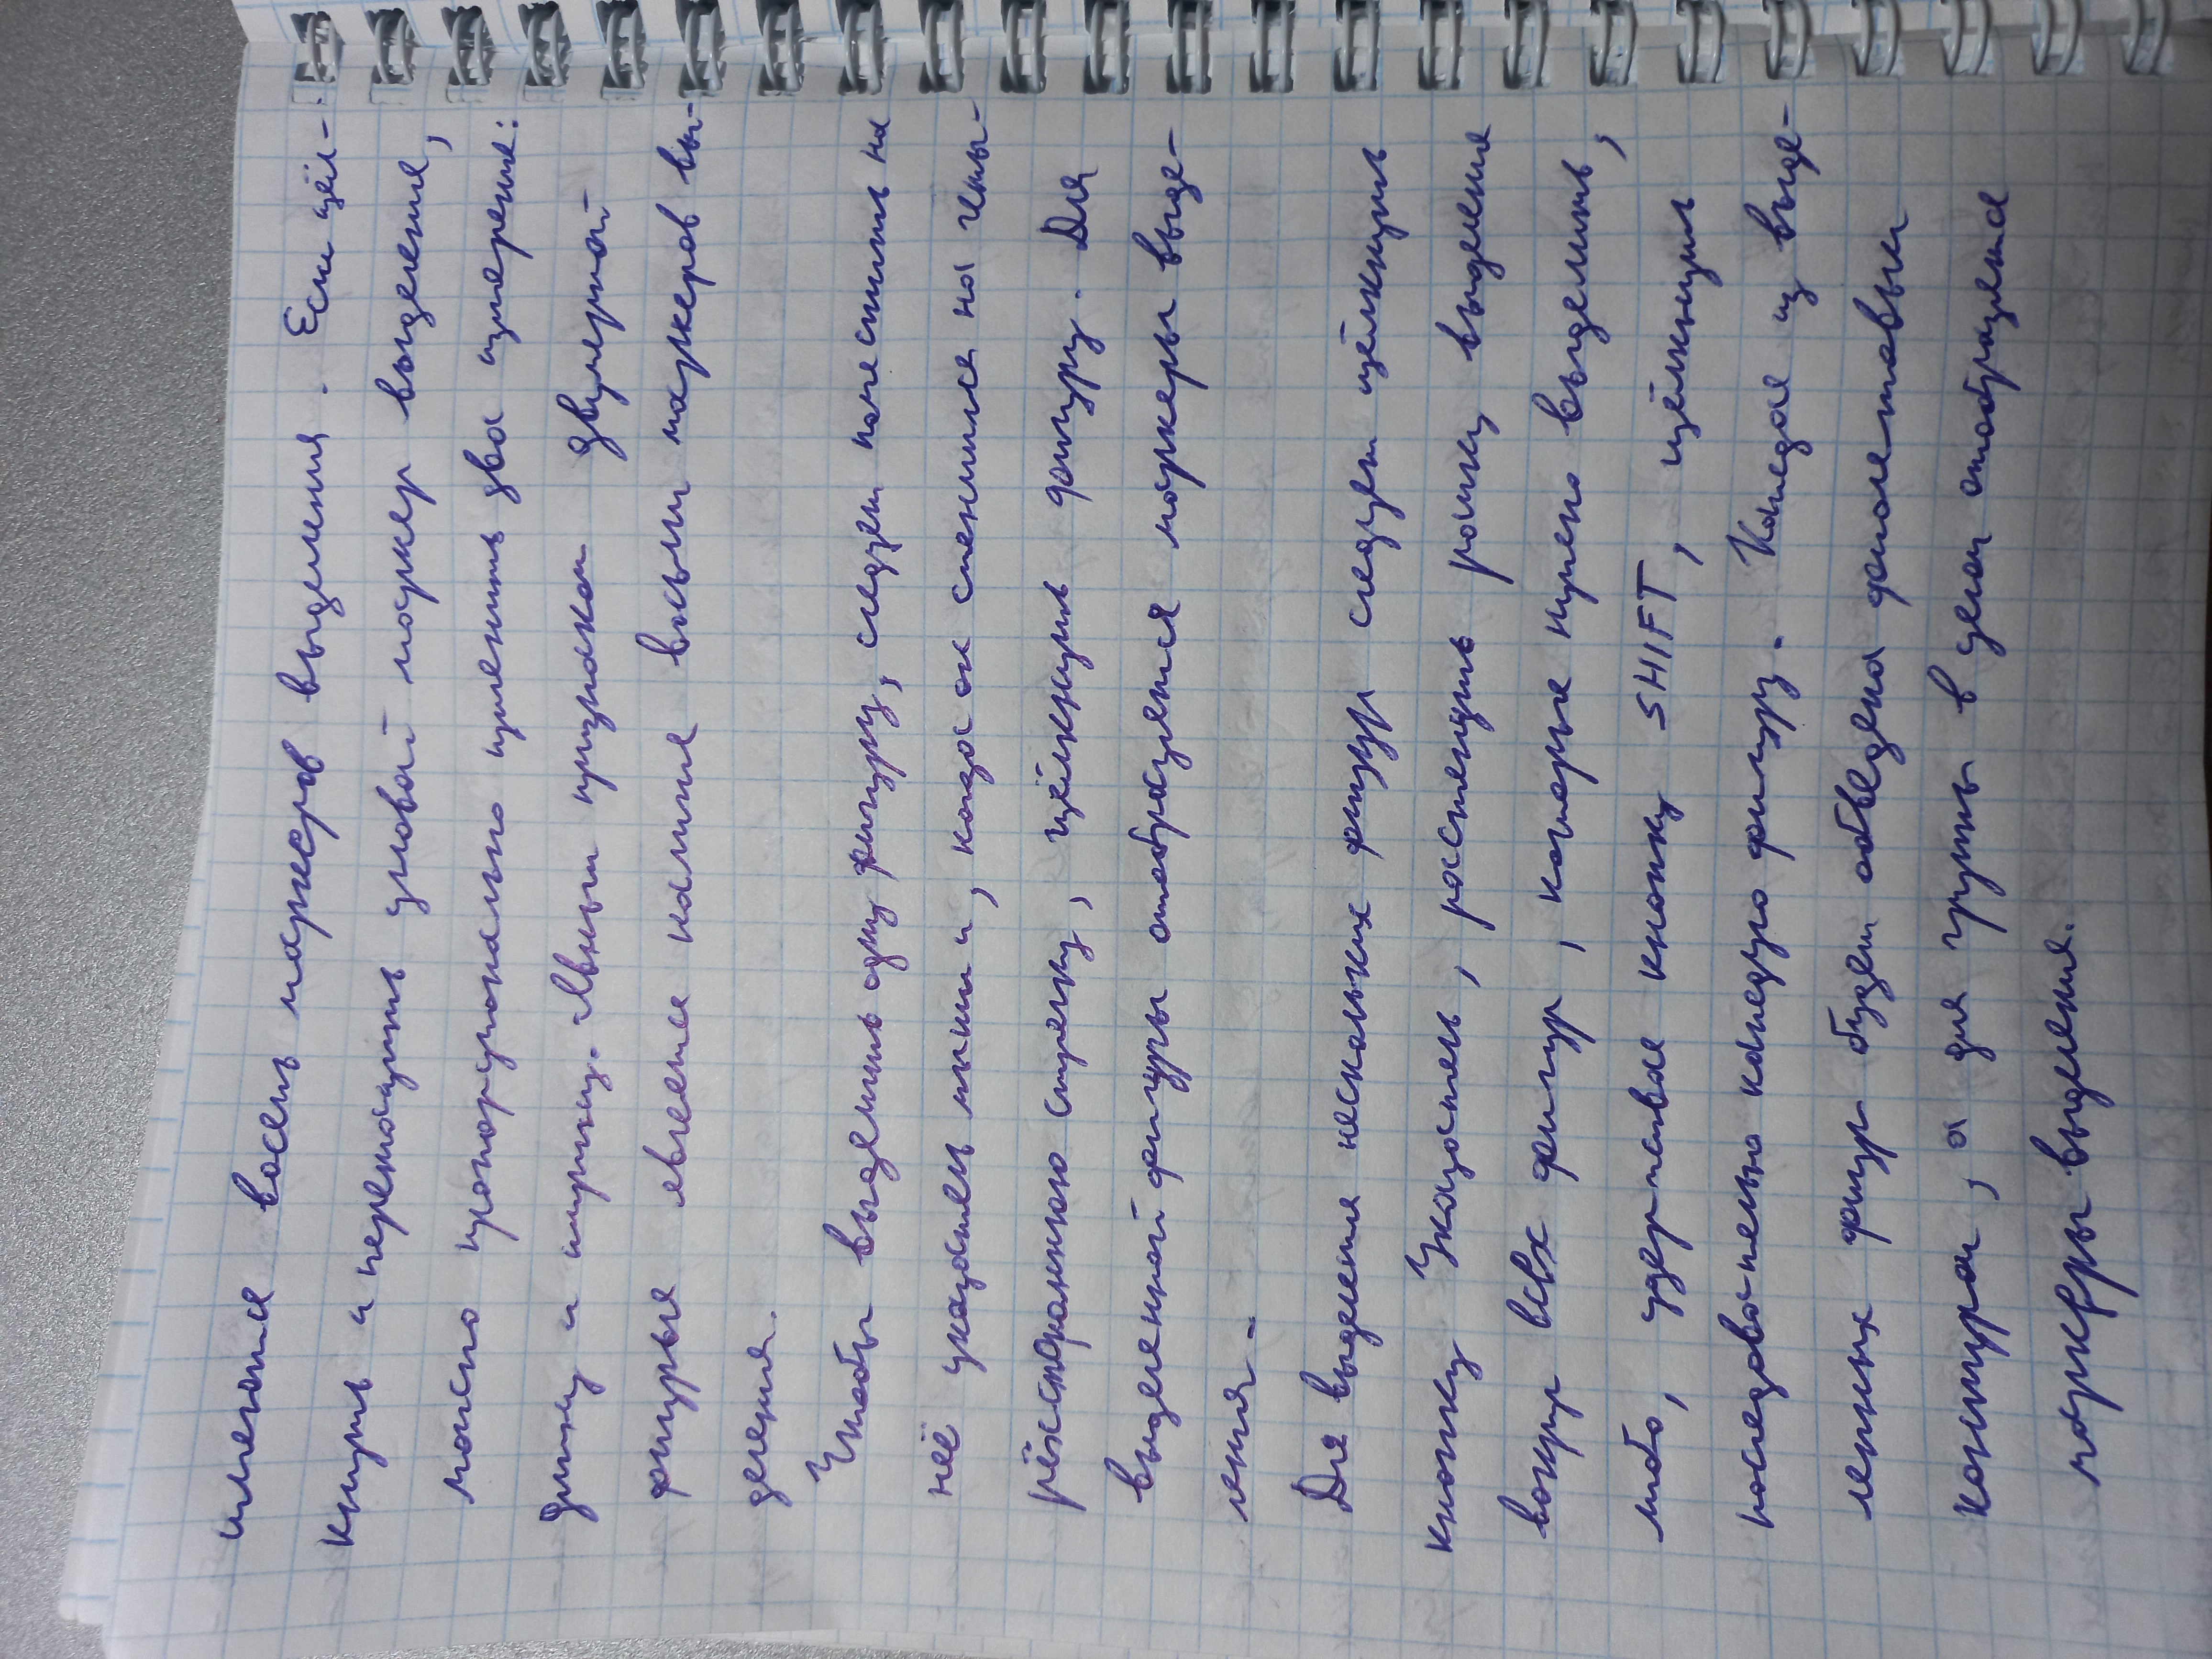 имеются восемь маркеров выделения. Если щёл-
кнуть и перетащить угловой маркер выделения,
можно пропорционально изменить два измерения:
длину и ширину. Явным признаком двумерной
фигуры является наличие восьми маркеров вы-
деления.
Чтобы выделить одну фигуру, следует поместить на
неё указатель мыши и, когда он сменился на четы-
рёхстороннюю стрелку, щёлкнуть фигуру. Для
выделенной фигуры отобразятся маркеры выде-
ления.
Для выделения нескольких фигур следует щёлкнуть
кнопку Указатель, растянуть рамку выделения
вокруг всех фигур, которые нужно выделить,
либо, удерживая кнопку SHIFT, щёлкнуть
последовательно каждую фигуру. Каждая из выде-
ленных фигур будет обведена фиолетовым
контуром, а для группы в целом отобразятся
маркеры выделения.